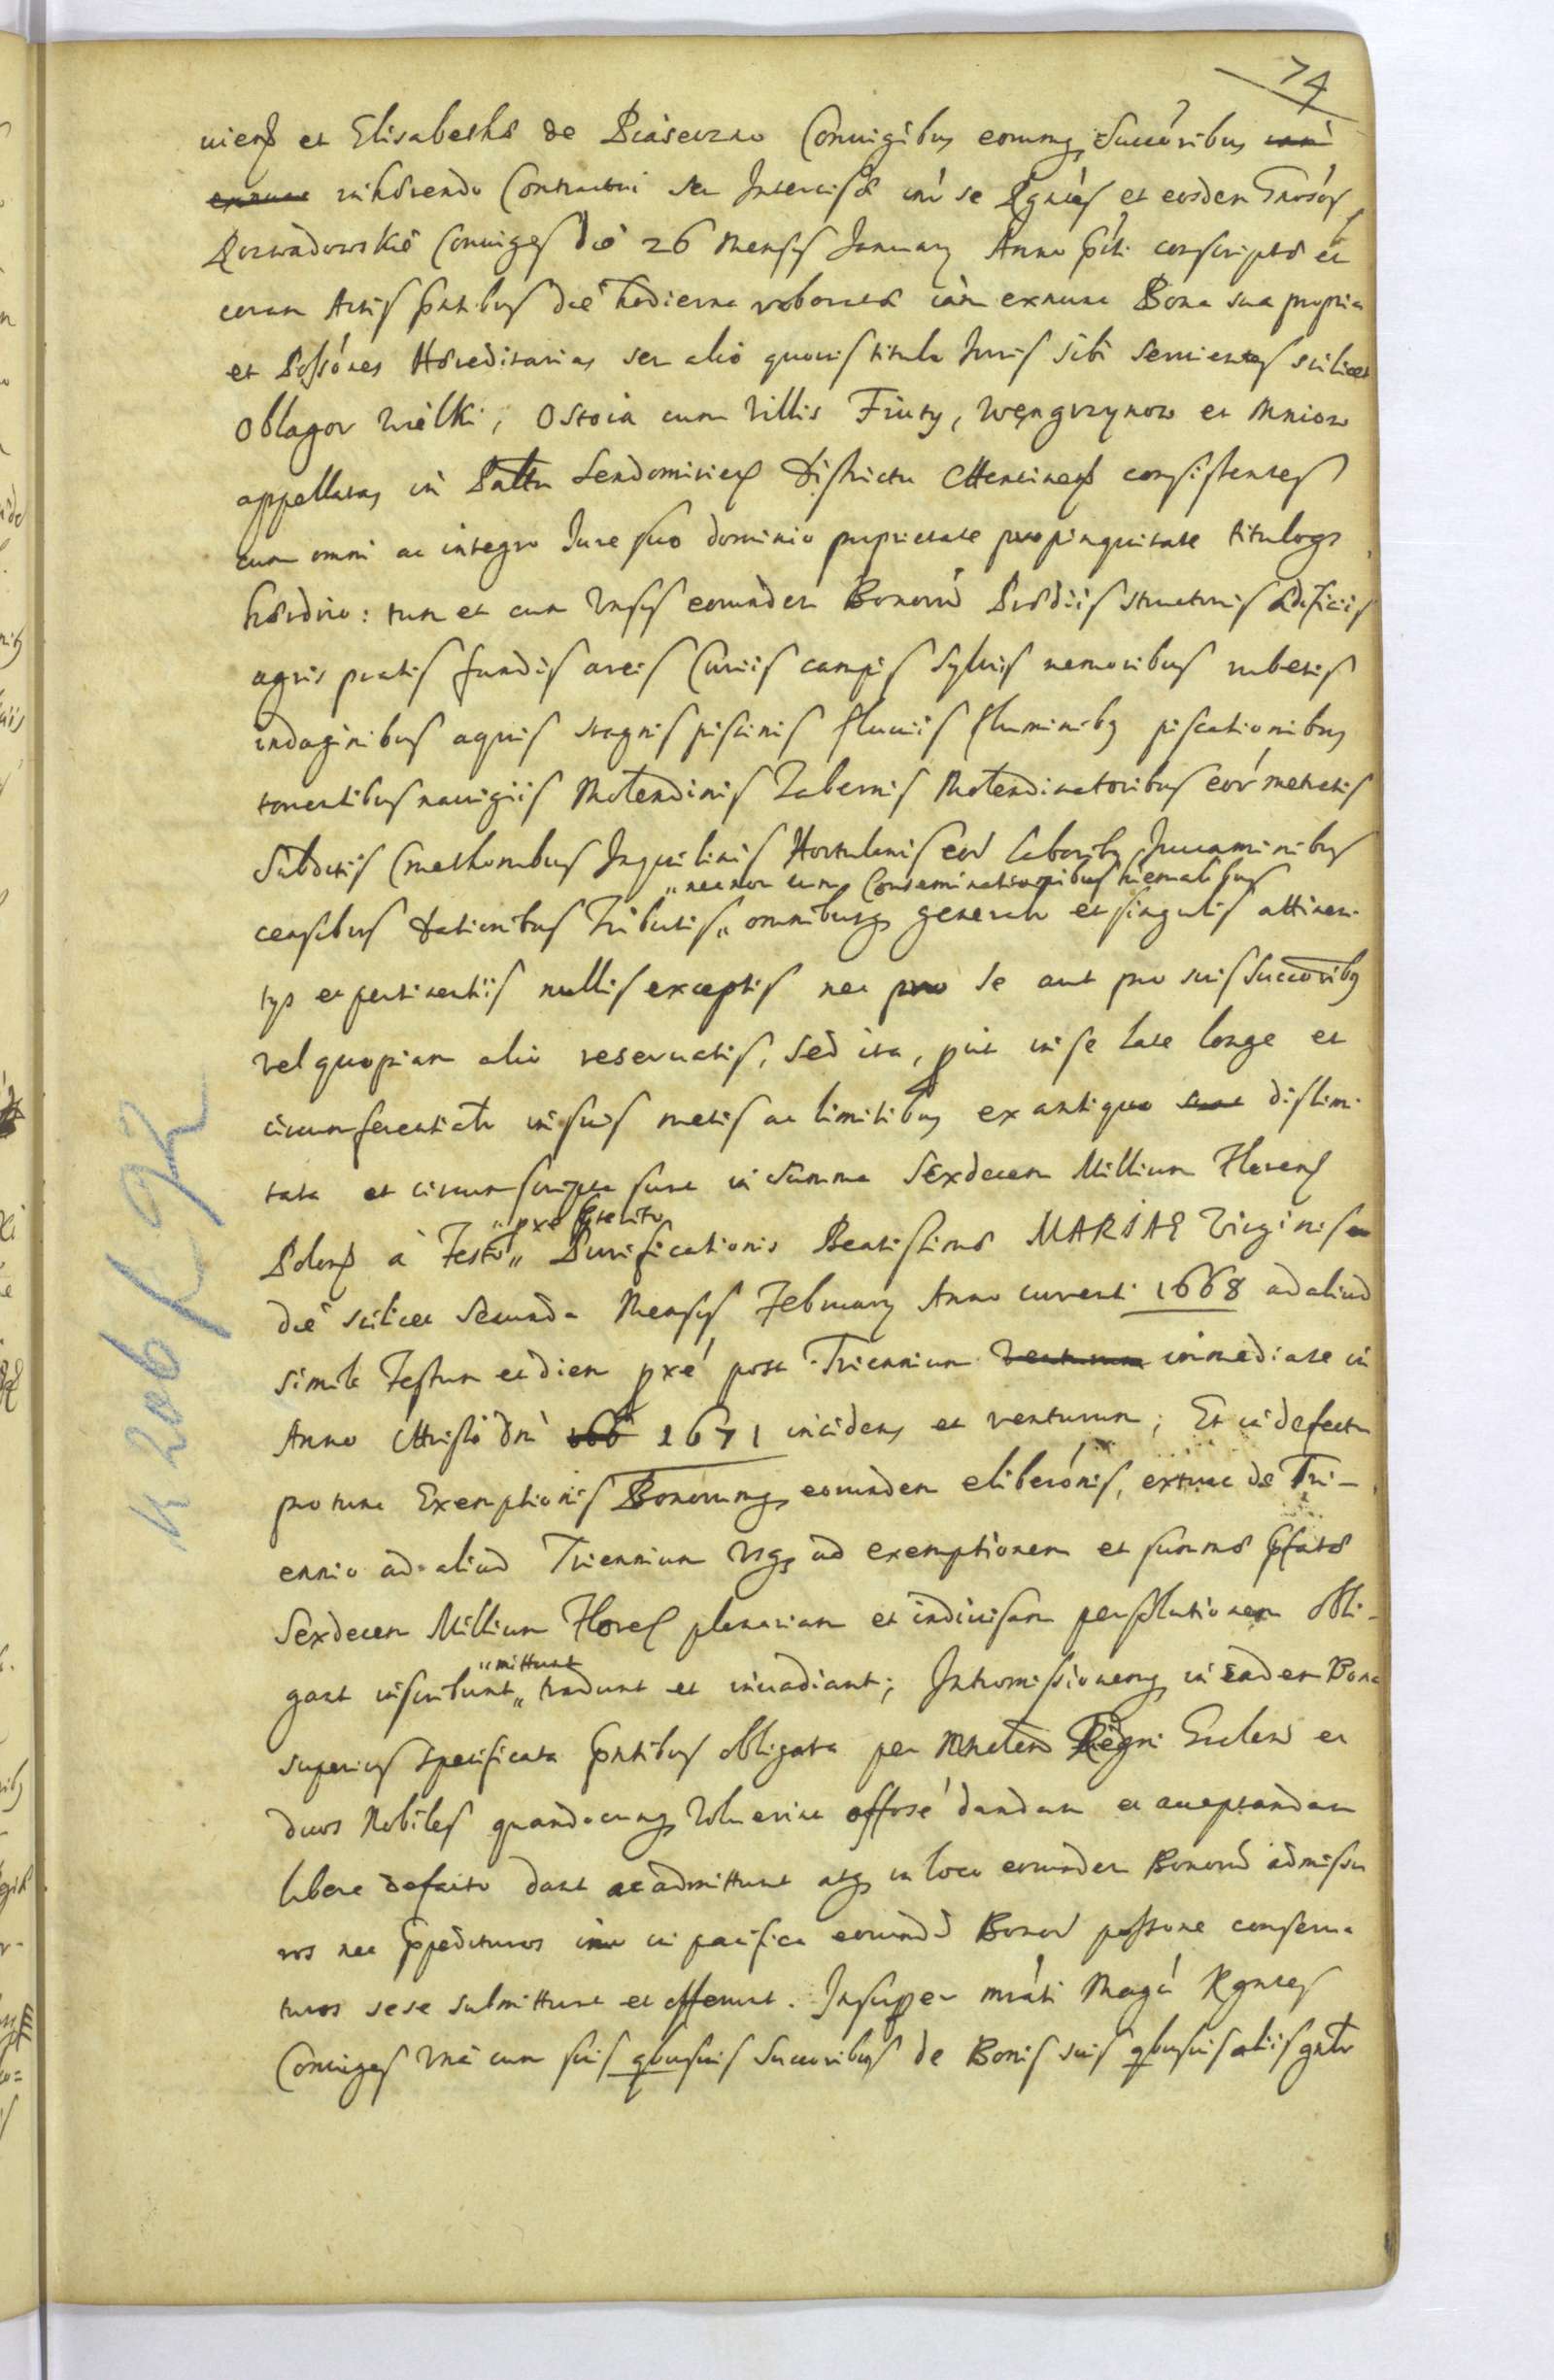 74
viens et Elisabethæ de Piaseczno Coniugibus eorumq, Succóribus iam
exnunc inhærendo Contractui seu Intercisæ intr se Rgntes et eosdem Gnosos
Rozwadowskie Coniuges die 26 Mensis January Anno pnti conscriptæ et
coram Actis pntibus die hodierna roboratæ iam exnunc Bona sua propria
et Possónes Hæreditarias seu alio quovis titulo Juris sibi servientes scilicet
Oblagor Wielki, Ostoia cum Villis Fiuty, Węngrzynow et Mniow
appellatas in Pałtu Sendomirien Districtu Chencinens consistentes
cum omni ac integro Jure suo dominio proprietate propinquitate tituloqs
hærdrio: tum et cum Vnsis eorundem Bonorú Prædiis structuris ædificiis
agris pratis fundis areis Curiis campis Sylvis nemoribus rubetis
indaginibus aquis stagnis piscinis fluviis fluminibq piscationibus
torrentibus navigiis Molendinis Tabernis Molendinatoribus eor metretis
Subditis Cmethonibus Inquilinis Hortulanis eor laboribq Juvaminibus
"necnon cum Conseminationibus hiemalibus
censibus dationibus Tributis „ omnibusq generalr et singulis attinen-
tys et pertinentiis nullis exceptis nec pro se aut pro suis Succoribq
vel quopiam alio reservatis, sed ita, put in se late longe et
circumferentialr in suis metis ac limitibus ex antiquo sunt dislimi-
tata et circumscripta sunt in Summa Sexdecem Millium Floren
"pxe pterito
Polon à Festo „ Purificationis Beatissimæ MARIAE Virginis
die scilicet Secunda Mensis February Anno currenti 1668 ad aliud
simile Festum et diem pxe post Triennium venturum immediate in
Anno Christi Dni 166 1671 incidens et venturum; Et in defectu
pro tunc Exemptionis Bonorumq eorundem eliberónis, extunc de Tri-
ennio ad aliud Triennium Vsq ad exemptionem et summæ pfatæ
Sexdecem Millium Floren plenariam et indivisam persolutionem obli-
"mittunt
gant inscribunt „ tradunt et invadiant; Intromissionemq in eadem Bona
superius specificata pntibus obligata per Mnrlem Regni Gnlem et
duos Nobiles quandocunq Voluerint offose dandam et acceptandam
libere de facto dant ac admittunt atq in loco eorundem Bonorú admissu
ros nec Impedituros imo in pacifica eorund Bonor possone conserva
turos sese submittunt et offerunt. Insuper mrati Magci Rgntes
Coniuges Vna cum suis qbusvis Succoribus de Bonis suis qbusvis aliis gnlr
K 206 / K